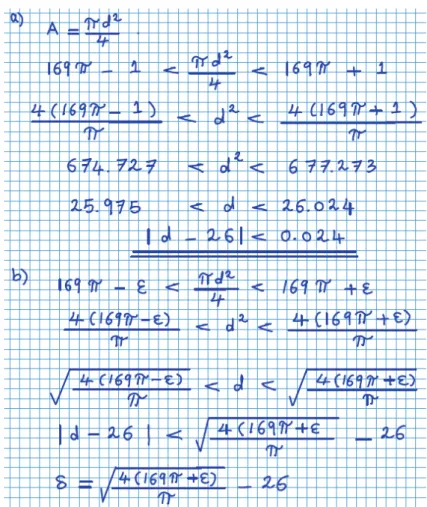 a) A = πd²/4
169π - 1 < πd²/4 < 169π + 1
4(169π - 1)/π < d² < 4(169π + 1)/π
674.727 < d² < 677.273
25.975 < d < 26.024
|d - 26| < 0.024
b) 169π - ε < πd²/4 < 169π + ε
4(169π-ε)/π < d² < 4(169π+ε)/π
√(4(169π-ε)/π) < d < √(4(169π+ε)/π)
|d - 26| < √(4(169π+ε/π) - 26
δ = √(4(169π+ε)/π) - 26